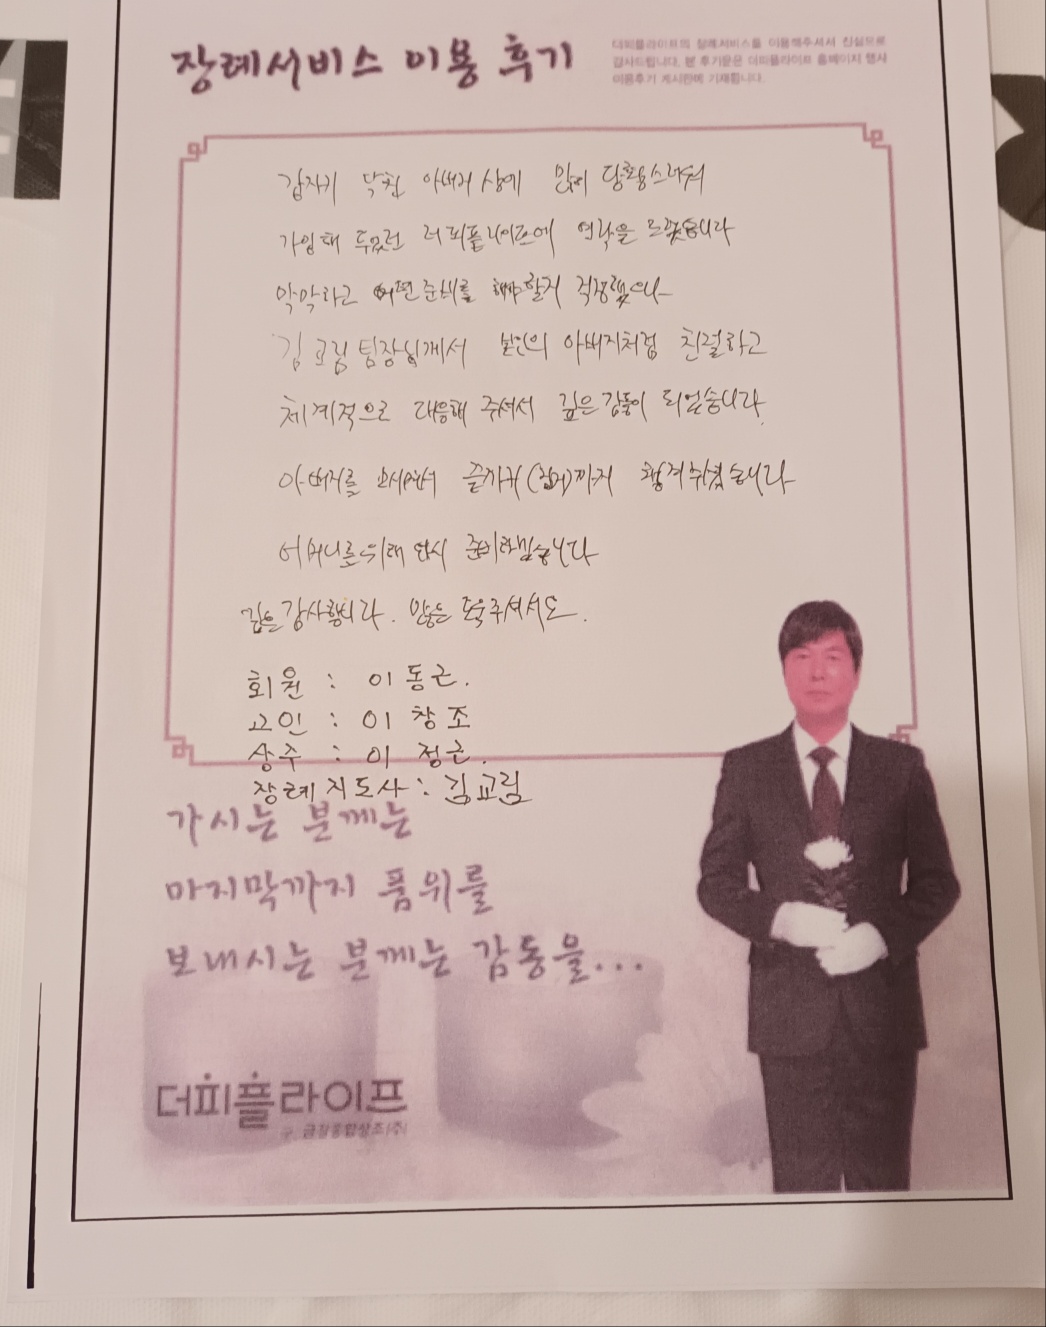 장례서비스 이용 후기
더피플라이프의 장례서비스를 이용해주셔서 진심으로
감사드립니다. 본 후기문은 더피플라이프 홈페이지 행사
이용후기 게시판에 기재합니다.
갑자기 닥친 아버지 상에 많이 당황스러워
가입해 두었던 더피플라이프에 연락을 드렸습니다
막막하고 어떤 준비를 해야할지 걱정했으나
김교림 팀장님께서 본인의 아버지처럼 친절하고
체계적으로 대응해 주셔서 깊은 감동이 되었습니다.
아버지를 모시면서 끝까지 까지 챙겨주셨습니다
어머니를 위해 다시 준비하겠습니다
깊은 감사합니다. 많은 도움주셔서도.
회원 : 이동근.
고인 : 이창조
상주 : 이정근.
장례지도사 : 김교림
가시는 분께는
마지막까지 품위를
보내시는 분께는 감동을...
더피플라이프
구. 금강종합상조(주)